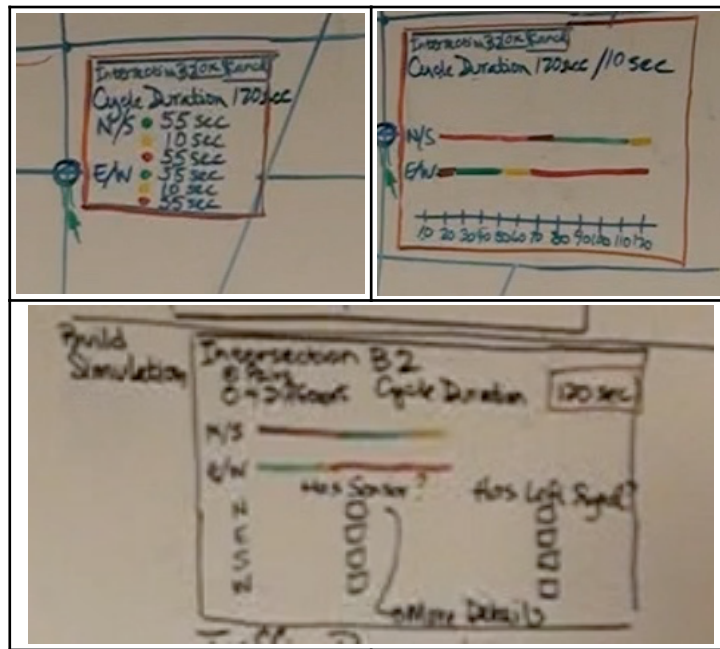 Intersection B2 OK Cancel
Cycle Duration 120sec
N/S 55 sec
10 sec
55 sec
E/W 55 sec
10 sec
55 sec
Intersection B2 OK Cancel
Cycle Duration 120sec/10 sec
N/S
E/W
10 20 30 40 50 60 70 80 90 100 110 120
Build
Simulation
Intersection B2
Cycle Duration 120 sec
N/S
E/W
Has Sensor? Has Left Signal?
N
E
S
More Details